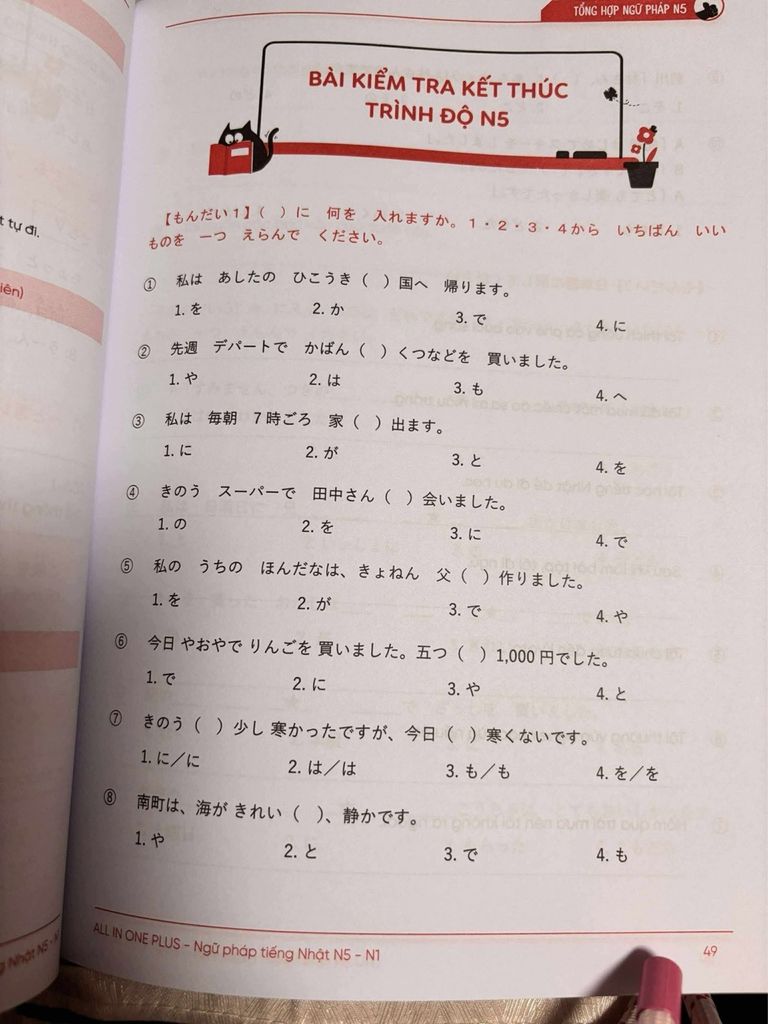 TỔNG HỢP NGỮ PHÁP N5
BÀI KIỂM TRA KẾT THÚC
TRÌNH ĐỘ N5
t tự đi.
iên)
【もんだい１】（　）に　何を　入れますか。１・２・３・４から　いちばん　いい
ものを　一つ　えらんで　ください。
① 私は　あしたの　ひこうき（　）国へ　帰ります。
1. を 2. か 3. で 4. に
② 先週　デパートで　かばん（　）くつなどを　買いました。
1. や 2. は 3. も 4. へ
③ 私は　毎朝　７時ごろ　家（　）出ます。
1. に 2. が 3. と 4. を
④ きのう　スーパーで　田中さん（　）会いました。
1. の 2. を 3. に 4. で
⑤ 私の　うちの　ほんだなは、きょねん　父（　）作りました。
1. を 2. が 3. で 4. や
⑥ 今日 やおやで りんごを 買いました。五つ（　）1,000 円でした。
1. で 2. に 3. や 4. と
⑦ きのう（　）少し 寒かったですが、今日（　）寒くないです。
1. に／に 2. は／は 3. も／も 4. を／を
⑧ 南町は、海が きれい（　）、静かです。
1. や 2. と 3. で 4. も
ALL IN ONE PLUS - Ngữ pháp tiếng Nhật N5 - N1
49